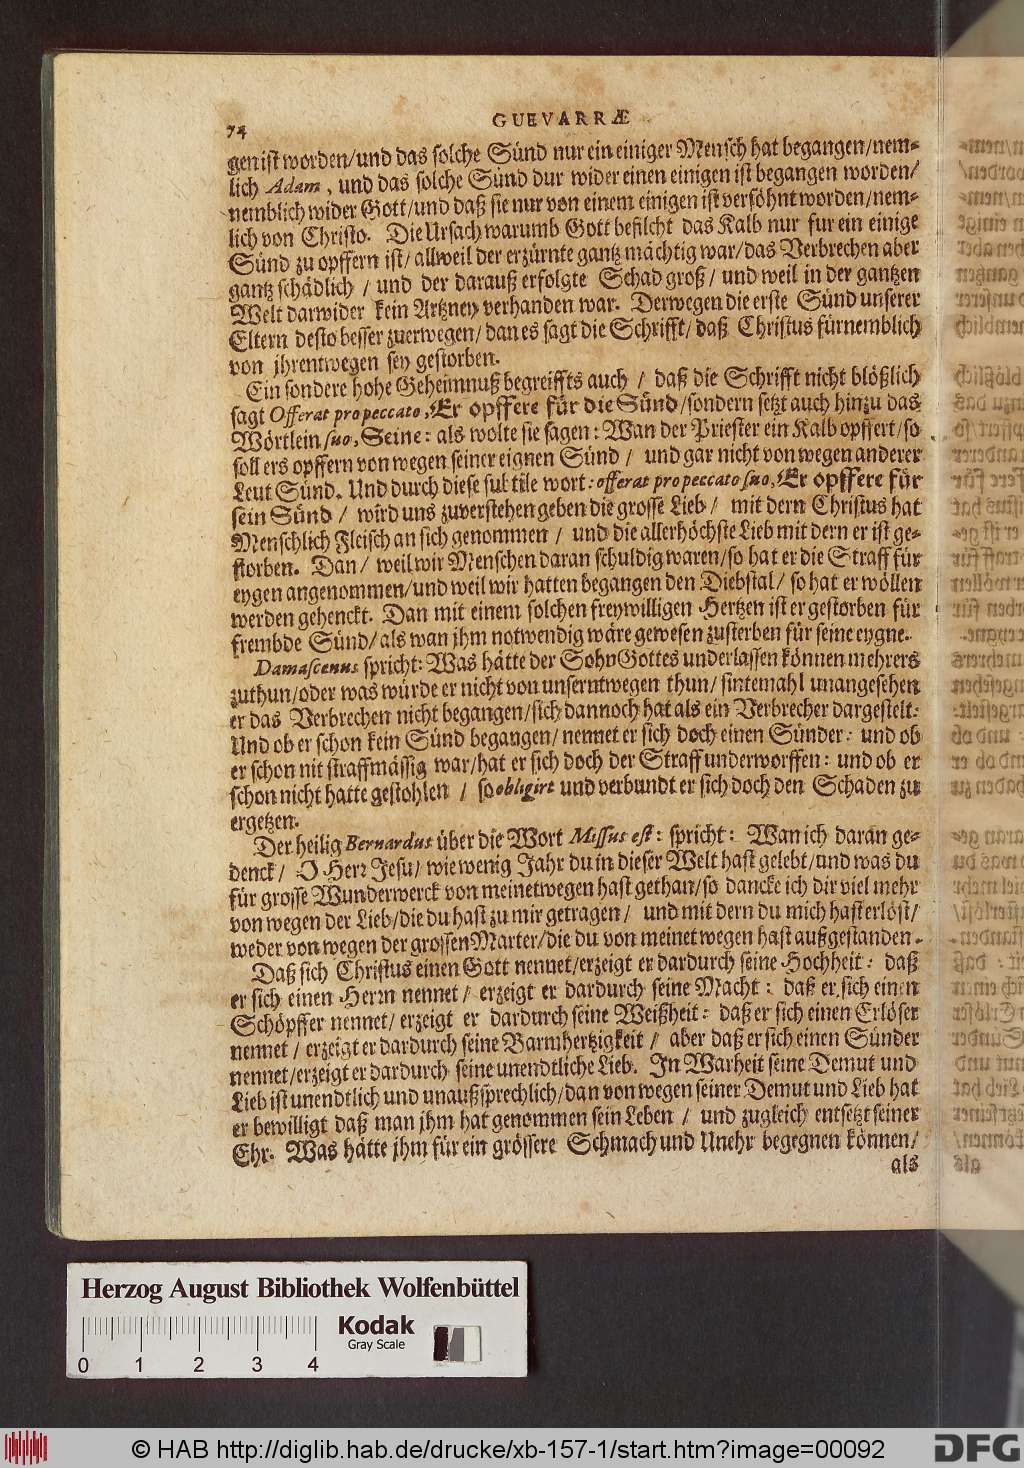 74
GUEVARRÆ
gen ist worden/und das solche Sünd nur ein einiger Mensch hat begangen/nem-
lich Adam, und das solche Sünd dur wider einen einigen ist begangen worden/
nemblich wider Gott/und daß sie nur von einem einigen ist versöhnt worden/nem-
lich von Christo. Die Ursach warumb Gott befilcht das Kalb nur fur ein einige
Sünd zu opffern ist/ allweil der erzürnte gantz mächtig war/das Verbrechen aber
gantz schädlich / und der darauß erfolgte Schad groß / und weil in der gantzen
Welt darwider kein Artzney verhanden war. Derwegen die erste Sünd unserer
Eltern desto besser zuerwegen/ dan es sagt die Schrifft/ daß Christus fürnemblich
von jhrentwegen sey gestorben.
Ein sondere hohe Geheimnuß begreiffts auch / daß die Schrifft nicht blößlich
sagt Offerat pro peccato, Er opffere für die Sünd/sondern setzt auch hinzu das
Wörtlein suo, Seine: als wolte sie sagen: Wan der Priester ein Kalb opffert/so
soll ers opffern von wegen seiner eignen Sünd / und gar nicht von wegen anderer
Leut Sünd. Und durch diese subtile wort: offerat pro peccato suo, Er opffere für
sein Sünd / wird uns zuverstehen geben die grosse Lieb / mit dern Christus hat
Menschlich Fleisch an sich genommen / und die allerhöchste Lieb mit dern er ist ge-
storben. Dan / weil wir Menschen daran schuldig waren/so hat er die Straff für
eygen angenommen/und weil wir hatten begangen den Diebstal/ so hat er wöllen
werden gehenckt. Dan mit einem solchen freywilligen Hertzen ist er gestorben für
frembde Sünd/als wan jhm notwendig wäre gewesen zusterben für seine eygne.
Damascenus spricht: Was hätte der Sohn Gottes underlassen können mehrers
zuthun/oder was würde er nicht von unserntwegen thun/ sintemahl unangesehen
er das Verbrechen nicht begangen/sich dannoch hat als ein Verbrecher dargestelt:
Und ob er schon kein Sünd begangen/ nennet er sich doch einen Sünder: und ob
er schon nit straffmässig war/hat er sich doch der Straff underworffen: und ob er
schon nicht hatte gestohlen / so obligirt und verbundt er sich doch den Schaden zu
ergetzen.
Der heilig Bernardus über die Wort Missus est: spricht: Wan ich daran ge-
denck/ O Herr Jesu/ wie wenig Jahr du in dieser Welt hast gelebt/und was du
für grosse Wunderwerck von meinetwegen hast gethan/so dancke ich dir viel mehr
von wegen der Lieb/die du hast zu mir getragen/ und mit dern du mich hast erlöst/
weder von wegen der grossen Marter/die du von meinetwegen hast außgestanden.
Daß sich Christus einen Gott nennet/erzeigt er dardurch seine Hochheit: daß
er sich einen Herrn nennet/ erzeigt er dardurch seine Macht: daß er sich einen
Schöpffer nennet/ erzeigt er dardurch seine Weißheit: daß er sich einen Erlöser
nennet / erzeigt er dardurch seine Barmhertzigkeit / aber daß er sich einen Sünder
nennet/erzeigt er dardurch seine unendtliche Lieb. In Warheit seine Demut und
Lieb ist unendtlich und unaußsprechlich/dan von wegen seiner Demut und Lieb hat
er bewilligt daß man jhm hat genommen sein Leben / und zugleich entsetzt seiner
Ehr. Was hätte jhm für ein grössere Schmach und Unehr begegnen können/
als
Herzog August Bibliothek Wolfenbüttel
Kodak
Gray Scale
0 1 2 3 4
© HAB http://diglib.hab.de/drucke/xb-157-1/start.htm?image=00092
DFG